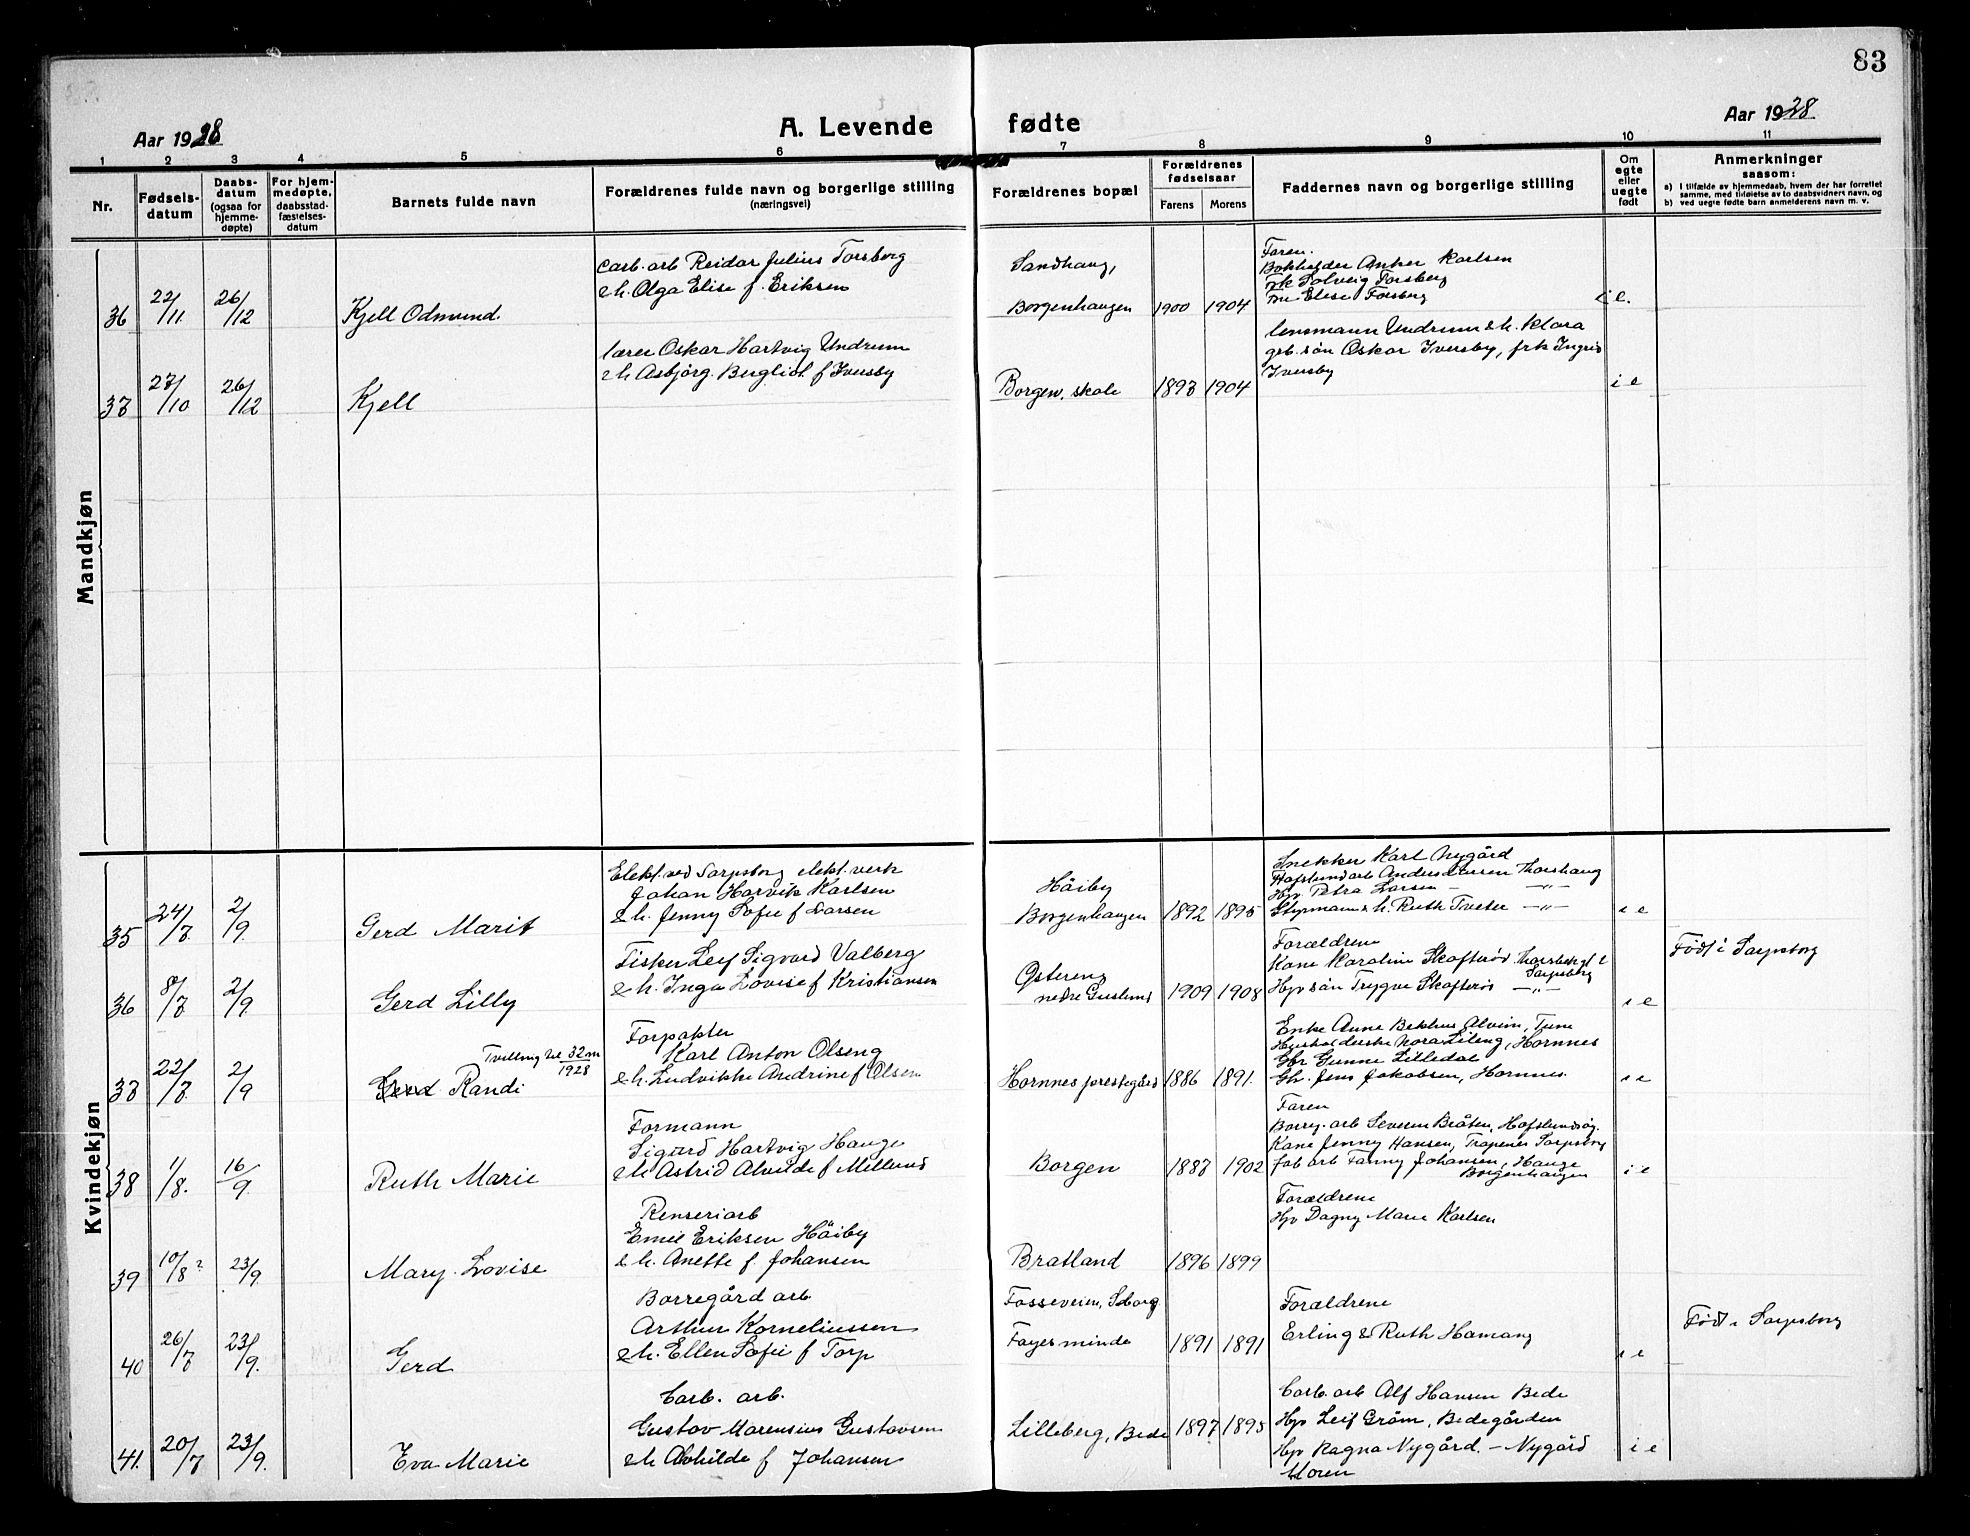 83
Aar 1928
A. Levende fødte
Aar 1928
1 2 3 4 5 6 7 8 9 10 11
Nr.
Fødsels-
datum
Daabs-
datum
(ogsaa for
hjemme-
døpte)
For hjem-
medøpte,
daabsstad-
fæstelses-
datum
Barnets fulde navn
Forældrenes fulde navn og borgerlige stilling
(næringsvei)
Forældrenes bopæl
Forældrenes
fødselsaar
Farens Morens
Faddernes navn og borgerlige stilling
Om
egte
eller
uegte
født
Anmerkninger
saasom:
a) I tilfælde av hjemmedaab, hvem der har forrettet
samme, med tilføielse av to daabsvidners navn, og
b) ved uegte fødte barn anmelderens navn m. v.
Mandkjøn
36 22/11 26/12 Kjell Odmund.
Carb. arb Reidar Julius Forsberg
& h. Olga Elise f. Eriksen
Sandhaug,
Borgenhaugen 1900 1904
Faren.
Bokholder Anker Karlsen
Frk Solveig Forsberg
Fru Elise Forsberg
i e.
37 27/10 26/12 Kjell
lærer Oskar Hartvig Undrum
& h Asbjörg Bergliot f Iversby
Borgen, skole 1893 1904
lensmann Undrum & h. Klara
gb. sön Oskar Iversby, frk Ingrid
Iversby
i e
Kvindekjøn
35 24/7. 2/9. Gerd Marit
Elekt. ved Sarpsborg elekt. verk
Johan Harvik Karlsen
& h. Jenny Sofie f Larsen
Häiby
Borgenhaugen 1892 1895
Snekker Karl Nygård
Hafslund arb Anders Larsen Thorshaug
Hp. Petra Larsen —„—
Stypmann & h. Ruth Tveter —„—
i e
36 8/7 2/9. Gerd Lilly
Fisker Leif Sigvard Valberg
& h. Inga Lovise f Kristiansen
Østereng
nedre Guslund 1909 1908
Forældrene
Kone Karoline Skofterød
Sarpsborg
Hp sön Trygve Skofterød —„—
i e
Født i Sarpsborg
37 22/7. 2/9 Gerd Randi
Tvilling til 32 m/1928
Forpakter
Karl Anton Olseng
& h. Ludvikke Andrine f Olsen
Hornnes prestegård 1886 1891.
Enke Anne Bekhus Alvim, Tune
Husholderske Nora Lileng, Hornnes
Gbr Gunne Lilledal
Gbr. Jens Jakobsen, Hornnes.
i e
38 1/8. 16/9. Ruth Marie
Formann
Sigurd Hartvig Hauge
& h Astrid Alvilde f Millund
Borgen 1887 1902
Faren
Borreg. arb Severin Bråten, Hafslundsøy.
Kone Jenny Hansen, Sarpsborg
fab arb Fanny Johansen, Hauge
Borgenhaugen
i e
39 10/8? 23/9. Mary Lovise
Renseriarb
Emil Eriksen Häiby
& h. Anette f. Johansen
Bratland 1896 1899
Forældrene
Hp Dagny Marie Karlsen
40 26/7 23/9. Gerd
Borregård arb.
Arthur Korneliussen
& h. Ellen Sofie f Torp
Fosseveien, Sborg
Fagerminde 1891 1891
Forældrene
Erling & Ruth Hamang
i e
Född i Sarpsborg
41. 20/7 23/9. Eva Marie
Carb. arb.
Gustav Marensius Gustavsen
& h Alvhilde f Johansen
Lilleberg, Bede 1897 1895
Carb. arb Alf Hansen Bede
Hp Leif Gröm, Bedegården
Hp Ragna Nygård. – Nygård
Moren
i e